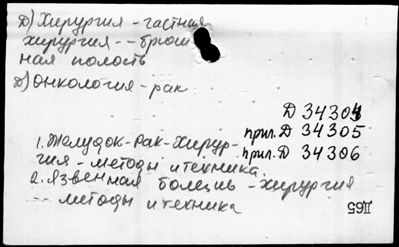 Д) Хирургия - частная
хирургия -- брюш
ная полость
Д) Онкология - рак
Д 34304
прил. Д 34305
прил. Д 34306
1. Желудок-Рак-Хирур-
гия - методы и техника.
2. Язвенная болезнь - хирургия
-- методы и техника
Д65